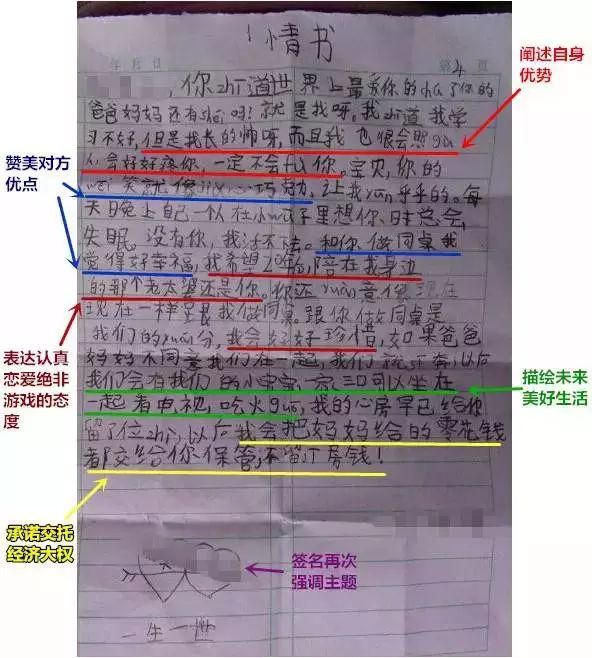 情书
年 月 日
第 4 页
你zhi道世界上最爱你的chu了你的
爸爸妈妈还有shei吗!就是我呀。我zhi道我学
习不好,但是我长的帅呀,而且我也很会照gu
人会好好疼你,一定不会 你。宝贝,你的
wei笑就像 巧 力,让我 乎乎的。每
天晚上自己一人在小 子里想你,时 会
失眠。没有你,我活不下去。和你做同桌我
觉得好幸福,我希望 陪在我身边
的那个老太婆还是你。你还 意 现在
现在一样 跟我做同桌。跟你做同桌是
我们的yuan分,我会好好珍惜,如果爸爸
妈妈不同意我们在一起,我们就 以后
我们会有我们的小宝宝,一家三口可以坐在
一起看电视,吃火guo,我的心房早已给你
留了位zhi,以后我会把妈妈给的零花钱
都交给你保管,不留 房钱!
一生一世
阐述自身
优势
赞美对方
优点
表达认真
恋爱绝非
游戏的态
度
描绘未来
美好生活
承诺交托
经济大权
签名再次
强调主题